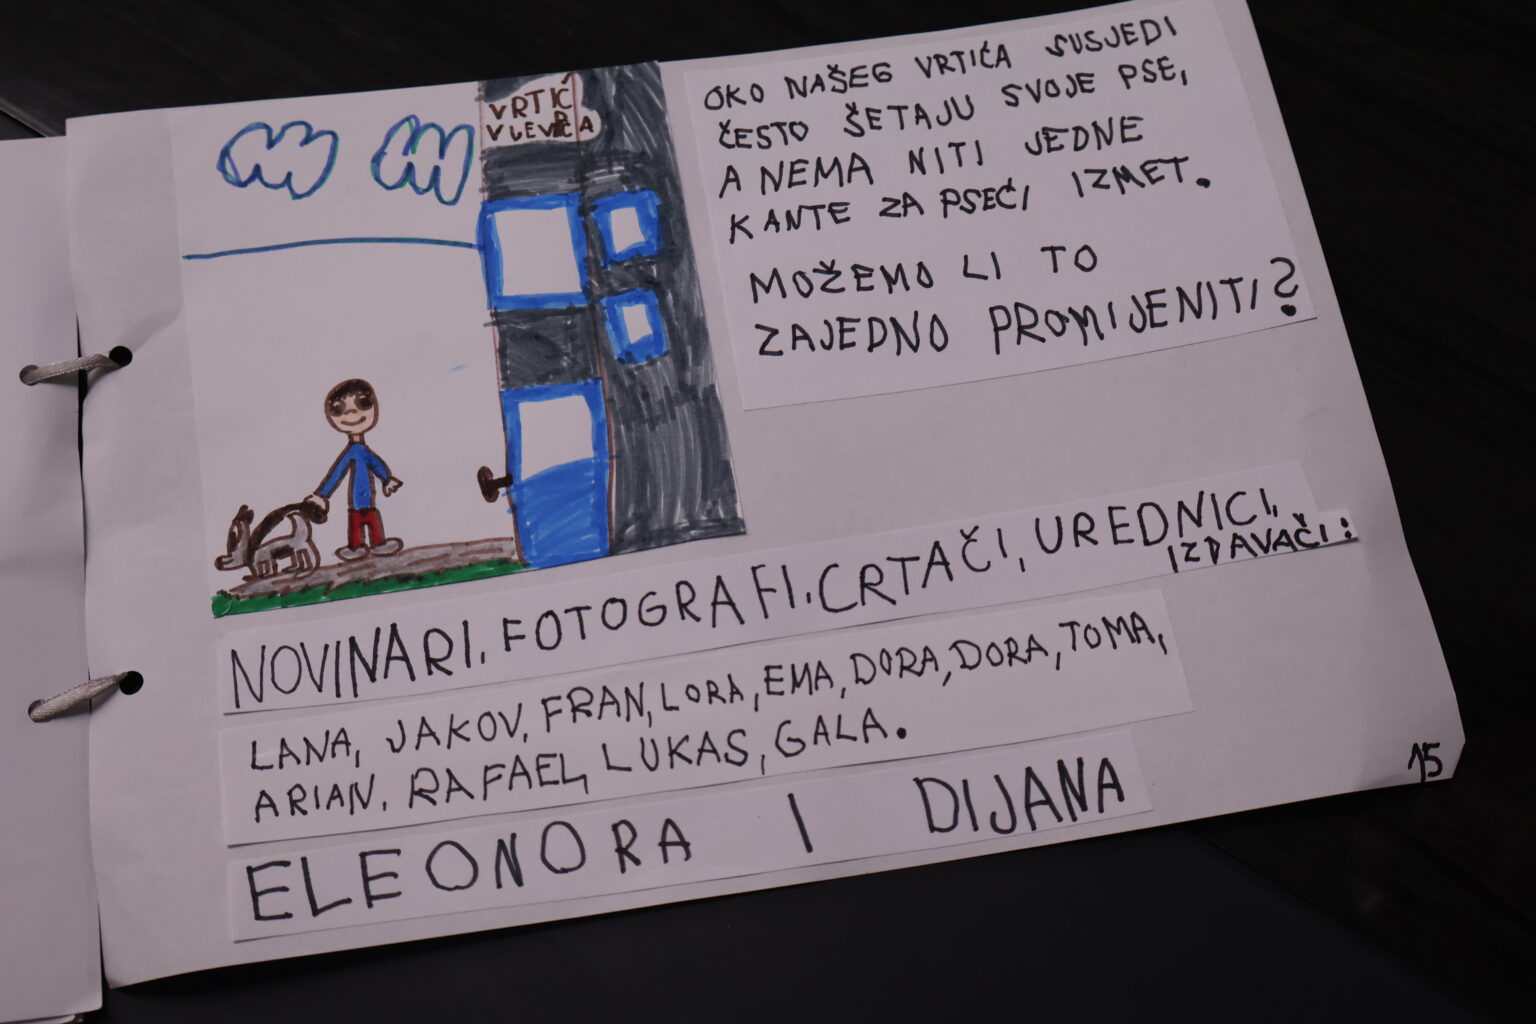 VRTIĆ
OKO NAŠEG VRTIĆA SUSJEDI
ČESTO ŠETAJU SVOJE PSE,
A NEMA NITI JEDNE
KANTE ZA PSEĆI IZMET.
MOŽEMO LI TO
ZAJEDNO PROMIJENITI?
NOVINARI, FOTOGRAFI, CRTAČI, UREDNICI,
IZDAVAČI:
LANA, JAKOV, FRAN, LORA, EMA, DORA, DORA, TOMA,
ARIAN, RAFAEL, LUKAS, GALA.
ELEONORA I DIJANA
15